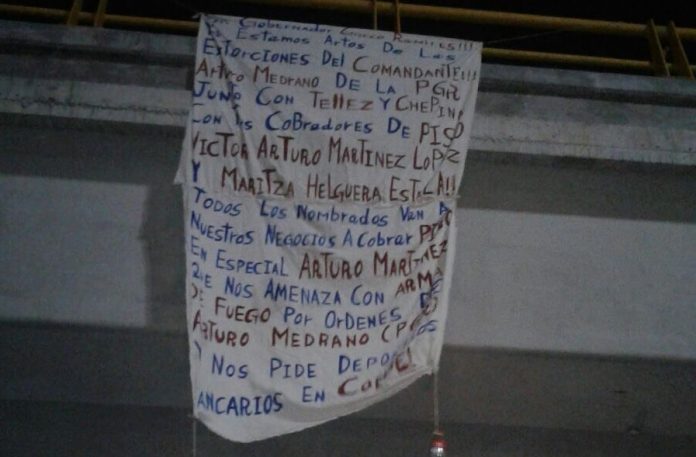 Gobernador
Ya Estamos Artos De Las
Estorciones Del Comandante!!!
Arturo Medrano De La PGR
Junto Con Tellez Y Chepin!
Con los Cobradores De Piso
Victor Arturo Martinez Lopez
Y Maritza Helguera
Todos Los Nombrados Van A
Nuestros Negocios A Cobrar Piso
En Especial Arturo Martinez
Que Nos Amenaza Con Arma
De Fuego Por Ordenes De
Arturo Medrano (PGR)
Y Nos Pide Depositos
ancarios En